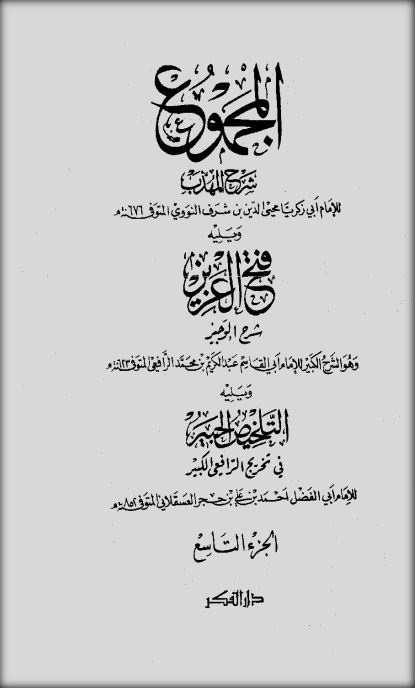 المجموع
شرح المهذب
للإمام أبي زكريا محيي الدين بن شرف النووي المتوفى سنة ٦٧٦ هـ
ويليه
فتح العزيز
شرح الوجيز
وهو الشرح الكبير للإمام أبي القاسم عبد الكريم بن محمد الرافعي المتوفى سنة ٦٢٣ هـ
ويليه
التلخيص الحبير
في تخريج الرافعي الكبير
للإمام أبي الفضل أحمد بن علي بن حجر العسقلاني المتوفى سنة ٨٥٢ هـ
الجزء التاسع
دار الفكر